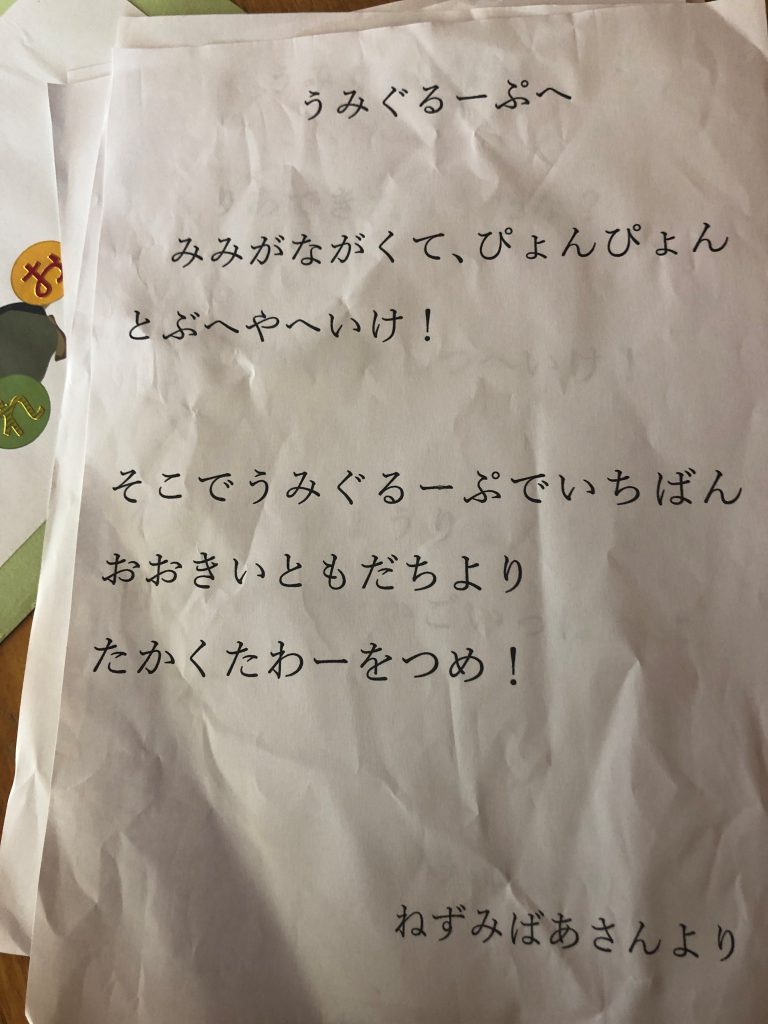 うみぐるーぷへ
みみがながくて、ぴょんぴょん
とぶへやへいけ！
そこでうみぐるーぷでいちばん
おおきいともだちより
たかくたわーをつめ！
ねずみばあさんより
お
れ